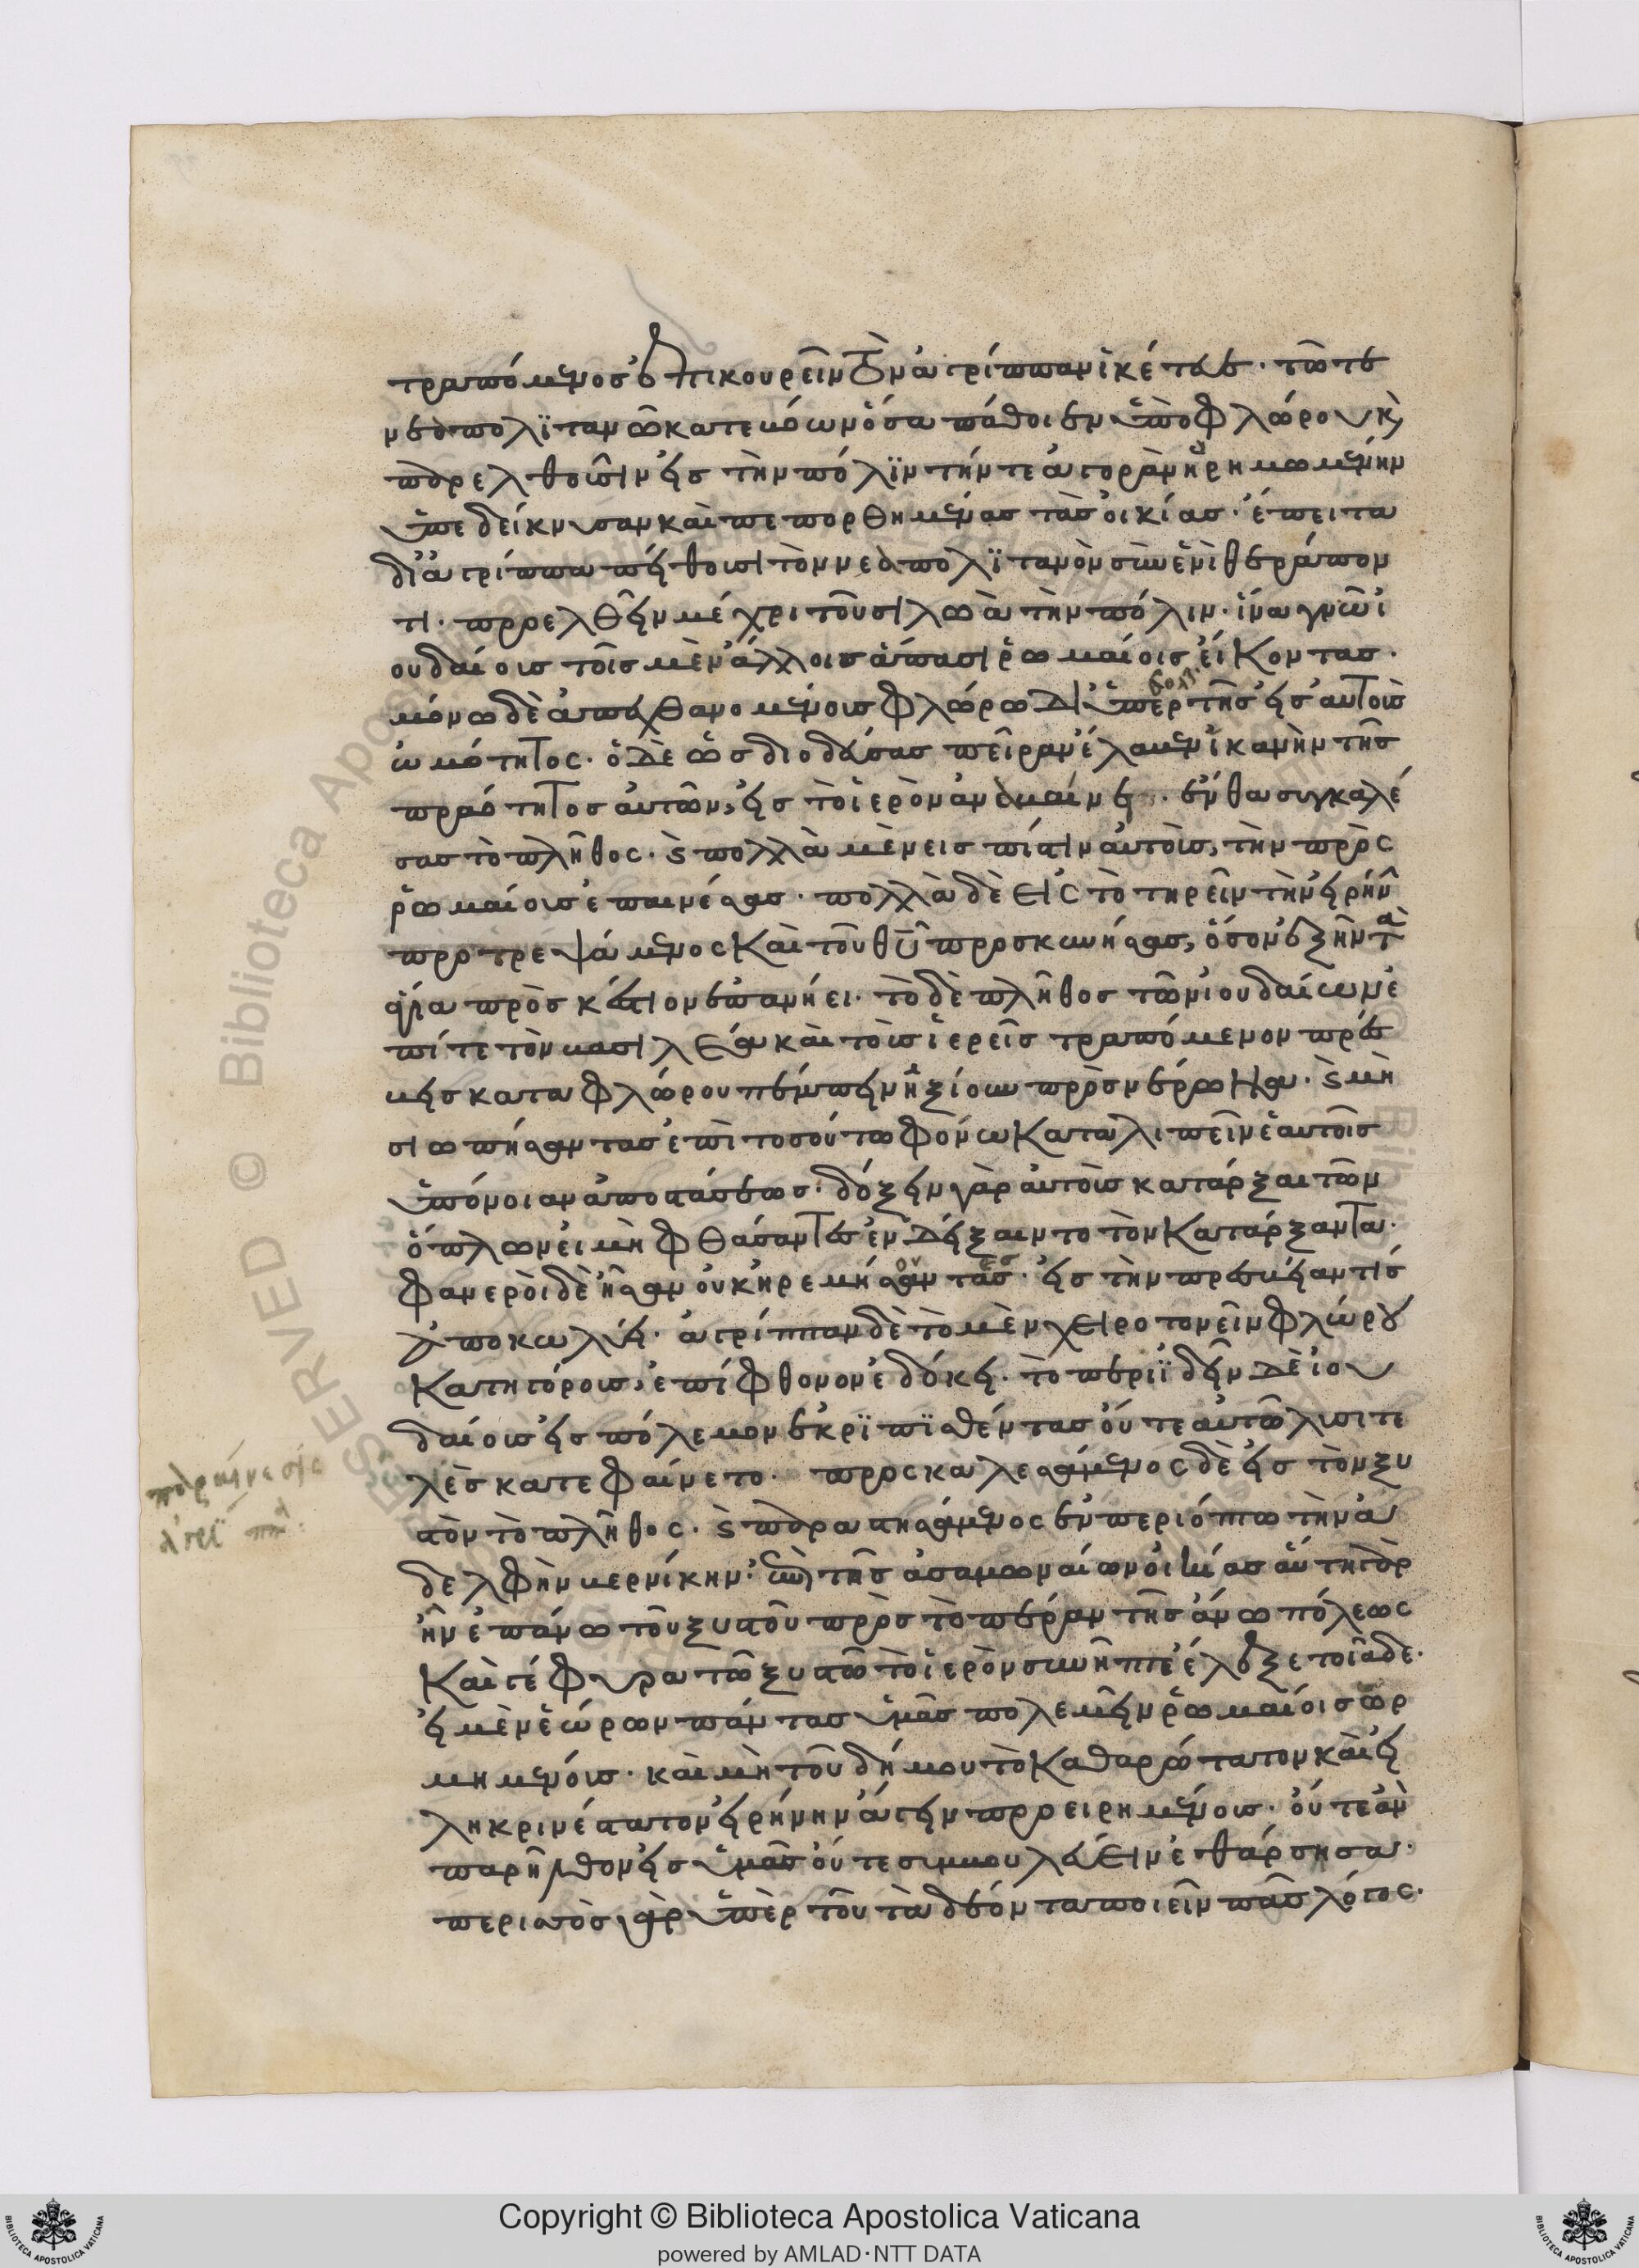 τραπόμενος ἐπικουρεῖν τὸν ἀγρίππαν ἱκέτευε· τῶ τε
νεαπολϊτανῶ κατεβόων ὅσα πάθοιεν ὑπὸ φλώρου κ̀
παρελθοῦσιν εἰς τὴν πόλϊν τήν τε ἀγορὰν ἠρημωμένην
ὑπεδείκνυσαν καὶ πεπορθημένας τὰς οἰκίας· ἔπειτα
δι' ἀγρίππα πείθουσι τὸν νεαπολϊτανὸν σὺν ἑνὶ θεράπον
τι· προελθεῖν μέχρι τοῦ σιλωὰ τὴν πόλιν· ἵνα γνῶ ἰ
ουδαίους τοῖς μὲν ἄλλοις ἅπασι ῥωμαίοις εἴκοντας·
μόνω δὲ ἀπεχθανομένους φλώρω δι' ὑπερβολὴν τῆς εἰς αὐτοὺς
ὠμότητος· ὁ δὲ ὡς διοδεύσας πεῖραν ἔλαβεν ἱκανὴν τῆς
πραότητος αὐτῶν, εἰς τὸ ἱερὸν ἀναβαίνει· ἔνθα συγκαλέ
σας τὸ πλῆθος· κ̀ πολλὰ μὲν εἰς πίστιν αὐτοὺς, τὴν πρὸς
ῥωμαίους ἐπαινέσας· πολλὰ δὲ εἰς τὸ τηρεῖν τὴν εἰρήν
προτρεψάμενος καὶ τοῦ θυ προσκυνήσας, ὅσον ἐξῆν τὰ
ἅγια πρὸς κέστιον ἐπανήει· τὸ δὲ πλῆθος τῶν ἰουδαίων ἐ
πί τε τὸν βασιλέα καὶ τοὺς ἱερεῖς τραπόμενον πρέσ
βεις κατα φλώρου πέμπειν ἠξίουν πρὸς νέρωνα· κ̀ μὴ
σιωπήσαντας ἐπὶ τοσούτω φόνω καταλιπεῖν ἑαυτοῖς
ὑπόνοιαν ἀποστάσεως· δόξειν γὰρ αὐτοὺς κατάρξαι τῶν
ὅπλων εἰ μὴ φθάσαντες ἐνδείξαιντο τὸν κατάρξαντα·
φανεροὶ δὲ ἦσαν οὐκ ἠρεμήσοντες· εἰς τὴν πρεσβείαν τις
ἀποκωλύει· ἀγρίππαν δὲ τὸ μὲν χειροτονεῖν φλώρου
κατηγόρους, ἐπίφθονον ἐδόκει· τὸ περιϊδεῖν δὲ ἰου
δαίους εἰς πόλεμον ἐκρϊπϊσθέντας οὔτε αὐτῶ λυσιτε
λὲς κατεφαίνετο· προσκαλεσάμενος δὲ εἰς τὸν ξυ
στὸν τὸ πλῆθος· κ̀ παραστησάμενος ἐν περιόπτω τὴν ἀ
δελφὴν βερνίκην· ἐπὶ τῆς ἀσαμωναίων οἰκίας αὕτη γὰρ
ἦν ἐπάνω τοῦ ξυστοῦ πρὸς τὸ πέραν τῆς ἄνω πόλεως
καὶ γέφυρα τῶ ξυστῶ τὸ ἱερὸν συνῆπτε ἔλεξε τοιάδε·
εἰ μὲν ἑώρων πάντας ὑμᾶς πολεμεῖν ῥωμαίοις ὡρ
μημένους· καὶ μὴ τοῦ δήμου τὸ καθαρώτατον καὶ εἰ
ληκρινέστατον εἰρήνην ἄγειν προειρημένους· οὔτε ἂν
παρῆλθον εἰς ὑμᾶς οὔτε συμβουλεύειν ἐθάρσησα·
περισσὸς γὰρ ὑπὲρ τοῦ τὰ δέοντα ποιεῖν πᾶς λόγος·
παραίνεσις
ἀγρίππα
Copyright © Biblioteca Apostolica Vaticana
powered by AMLAD·NTT DATA